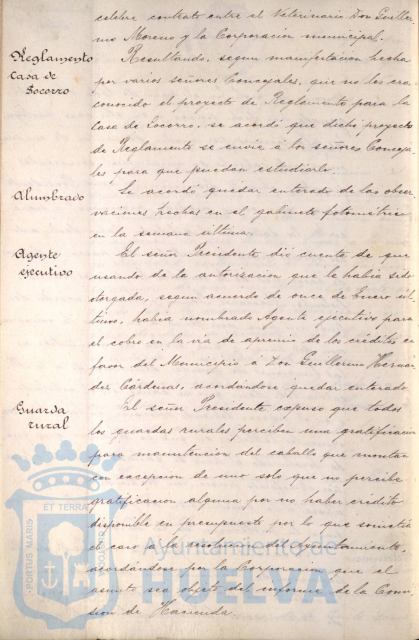 celebre contrato entre el Veterinario Don Guiller-
mo Moreno y la Corporación municipal.
Reglamento
Casa de
Socorro
Resultando, segun manifestación hecha
por varios señores Concejales, que no les era
conocido el proyecto de Reglamento para la
Casa de Socorro, se acordó que dicho proyecto
de Reglamento se envie á los señores Conceja-
les para que puedan estudiarlo.
Alumbrado
Se acordó quedar enterado de las obser-
vaciones hechas en el gabinete fotométrico
en la semana última.
Agente
ejecutivo
El señor Presidente dió cuenta de que
usando de la autorizacion que le habia sido
otorgada, segun acuerdo de once de Enero úl-
timo, habia nombrado Agente ejecutivo para
el cobro en la via de apremio de los créditos a
favor del Municipio á Don Guillermo Hernan-
dez Cárdenas, acordándose quedar enterado.
Guarda
rural
El señor Presidente expuso que todos
los guardas rurales perciben una gratificacion
para manutencion del caballo que montan
con excepcion de uno solo que no percibe
gratificacion alguna por no haber crédito
disponible en presupuesto por lo que sometia
el caso á la resolucion del Ayuntamiento,
acordándose por la Corporacion que el
asunto sea objeto del informe de la Comi-
sion de Hacienda.
PORTUS MARIS
ET TERRAE
Ayuntamiento de
HUELVA